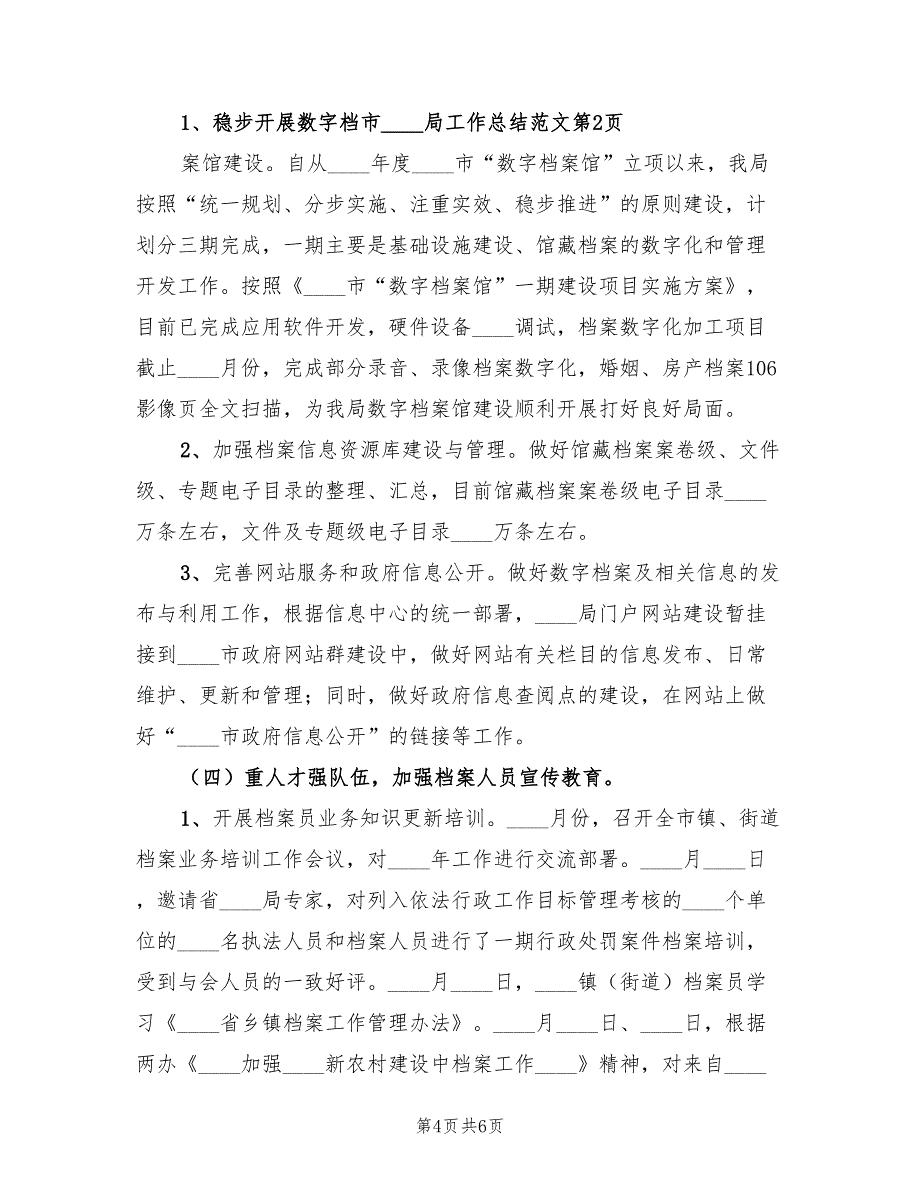 1、稳步开展数字档市____局工作总结范文第2页
案馆建设。自从____年度____市“数字档案馆”立项以来，我局
按照“统一规划、分步实施、注重实效、稳步推进”的原则建设，计
划分三期完成，一期主要是基础设施建设、馆藏档案的数字化和管理
开发工作。按照《____市“数字档案馆”一期建设项目实施方案》，
目前已完成应用软件开发，硬件设备____调试，档案数字化加工项目
截止____月份，完成部分录音、录像档案数字化，婚姻、房产档案106
影像页全文扫描，为我局数字档案馆建设顺利开展打好良好局面。
2、加强档案信息资源库建设与管理。做好馆藏档案案卷级、文件
级、专题电子目录的整理、汇总，目前馆藏档案案卷级电子目录____
万条左右，文件及专题级电子目录____万条左右。
3、完善网站服务和政府信息公开。做好数字档案及相关信息的发
布与利用工作，根据信息中心的统一部署，____局门户网站建设暂挂
接到____市政府网站群建设中，做好网站有关栏目的信息发布、日常
维护、更新和管理；同时，做好政府信息查阅点的建设，在网站上做
好“____市政府信息公开”的链接等工作。
（四）重人才强队伍，加强档案人员宣传教育。
1、开展档案员业务知识更新培训。____月份，召开全市镇、街道
档案业务培训工作会议，对____年工作进行交流部署。____月____日
，邀请省____局专家，对列入依法行政工作目标管理考核的____个单
位的____名执法人员和档案人员进行了一期行政处罚案件档案培训，
受到与会人员的一致好评。____月____日，____镇（街道）档案员学
习《____省乡镇档案工作管理办法》。____月____日、____日，根据
两办《____加强____新农村建设中档案工作____》精神，对来自____
第4页共6页